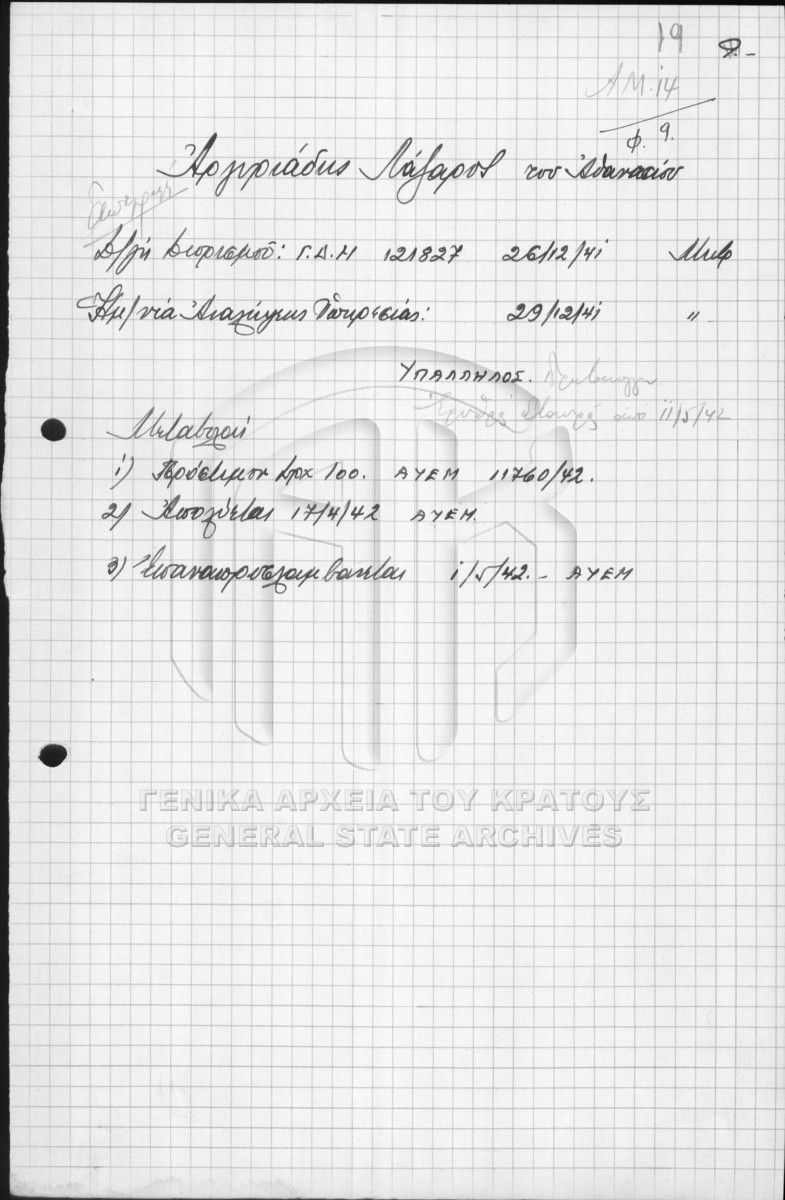 19 9.-
Α.Μ. 14
φ. 9.
Ἀργυριάδης Λάζαρος του Ἀθανασίου
Δ/γή Διορισμοῦ: Γ.Δ.Μ 121827 26/12/41
Ἡμ/νία Ἀναλήψεως Ὑπηρεσίας: 29/12/41 "
ΥΠΑΛΛΗΛΟΣ.
Ἐρυθρός Σταυρός ἀπό 11/5/42
Μεταβολαί
1) Πρόστιμον Δρχ 100. ΑΥΕΜ 11760/42.
2) Ἀπολύεται 17/4/42 ΑΥΕΜ.
3) Ἐπαναπροσλαμβάνεται 1/5/42.- ΑΥΕΜ
ΓΕΝΙΚΑ ΑΡΧΕΙΑ ΤΟΥ ΚΡΑΤΟΥΣ
GENERAL STATE ARCHIVES